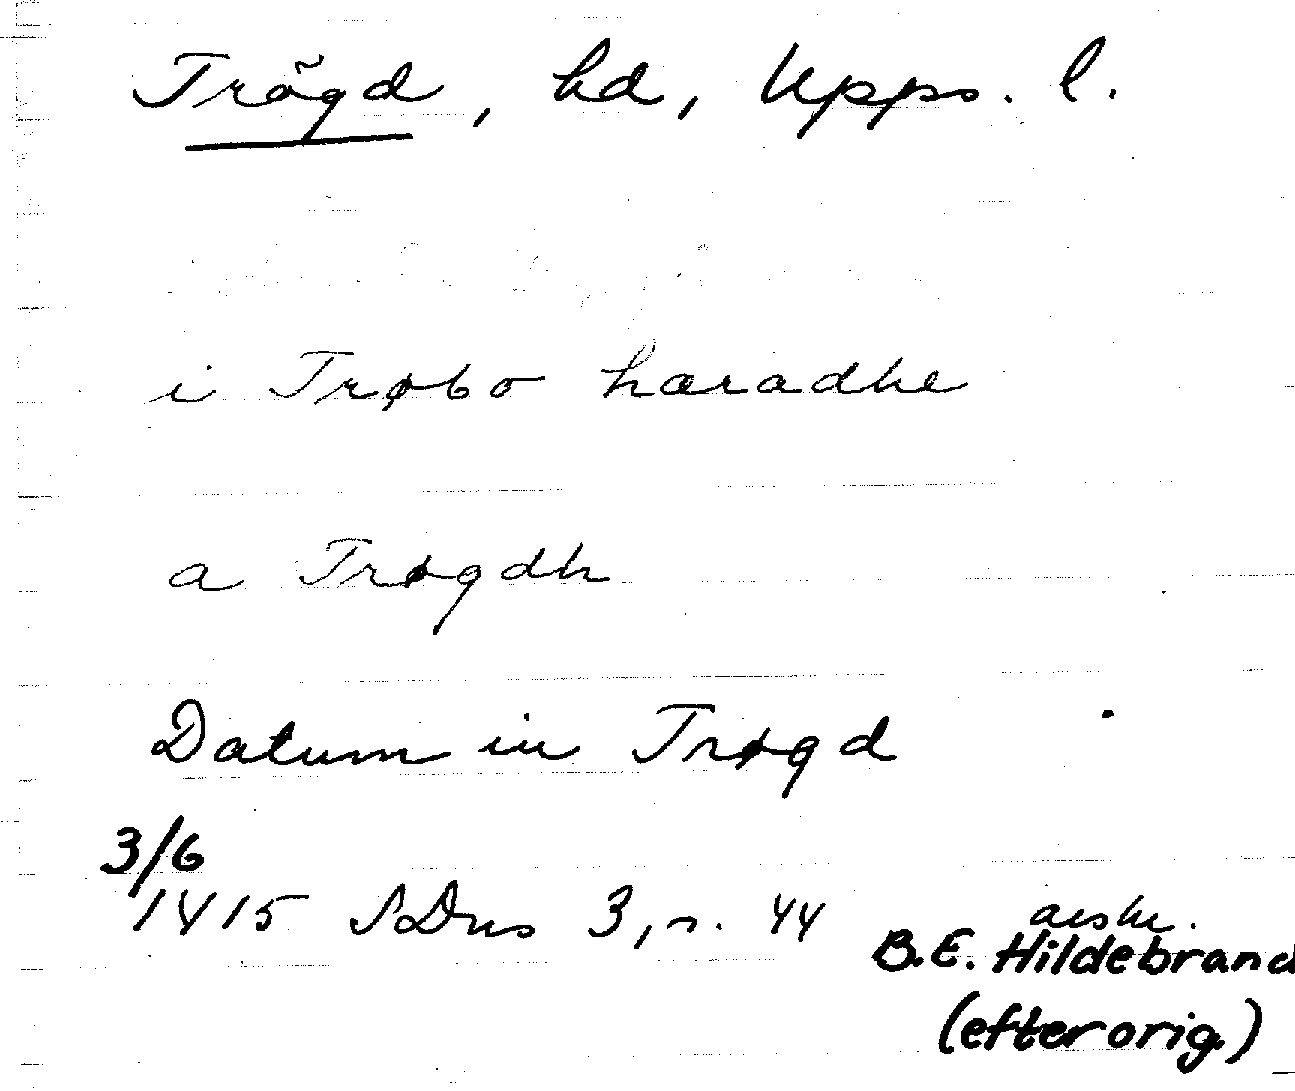 Trögd, hd, Upps. l.
i Trøbo haradhe
a Trøgdh
Datum in Trøgd
3/6
1415 SDns 3, n. 44
avskr.
B.E. Hildebrand
(efter orig.)